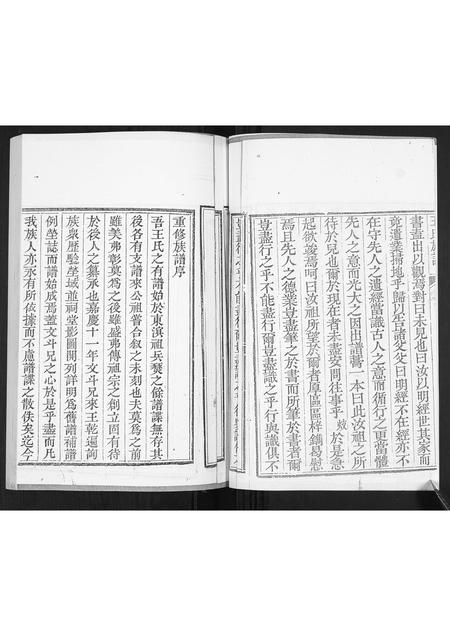 書盍出以觀焉對曰未見也曰汝以明經世其家而
竟遺業掃地乎歸以告諸父父曰明經不在經亦不
在守先人之遺經當識古人之意而循行之更當體
先人之意而光大之因出譜藁一本曰此汝祖之所
待於兒也爾於現在者未盡安問往事乎 於是急
起欲竣焉呵曰汝祖所望於爾者厚區區梓鋟曷慰
焉且先人之德業豈盡筆之於書而所筆於書者爾
豈盡行之乎不能盡行爾豈盡識之乎行與識俱不
重修族譜序
吾王氏之有譜始於東濱祖兵燹之餘譜諜無存其
後各有支譜來公祖嘗合敘之未刻也夫莫為之前
雖美弗彰莫為之後雖盛弗傳祖宗之創立固有待
於後人之纂承也嘉慶十一年文斗兄來王乾遍詢
族衆歷驗塋域並祠堂影圖開列詳明為舊譜補譜
例塋誌而譜始成焉蓋文斗兄之心於是乎盡而凡
我族人亦永有所依據而不慮譜諜之散佚矣迄今